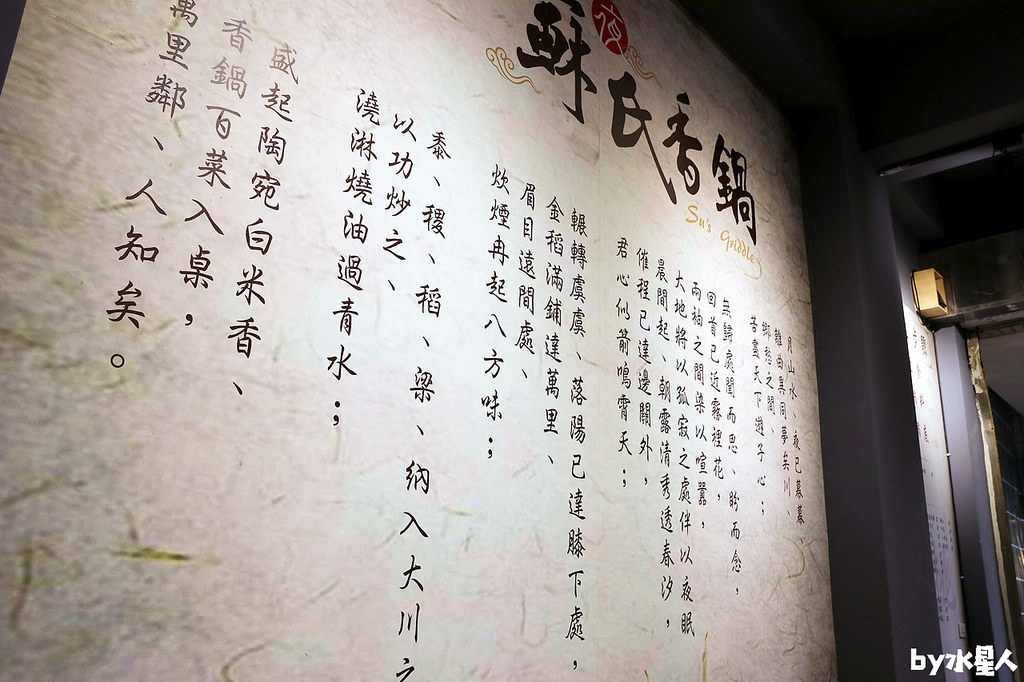 酥氏香鍋
夜
Su's Griddle
月山水、夜已暮暮
離曲異同夢矣川、
鄉愁之間、
苦盡天下遊子心；
無歸處閣而思、盼而念，
回首已近霧裡花，
兩袖之間染以喧囂，
大地將以孤寂之處伴以夜眠
晨間起、朝露清秀透春汐，
催程已達邊關外，
君心似箭鳴霄天；
輾轉虞虞、落陽已達膝下處，
金稻滿鋪達萬里、
眉目遠間處、
炊煙冉起八方味；
黍、稷、稻、梁、納入大川之
以功炒之、
澆淋燒油過青水；
盛起陶宛白米香、
香鍋百菜入桌，
萬里鄰、人知矣。
by水星人